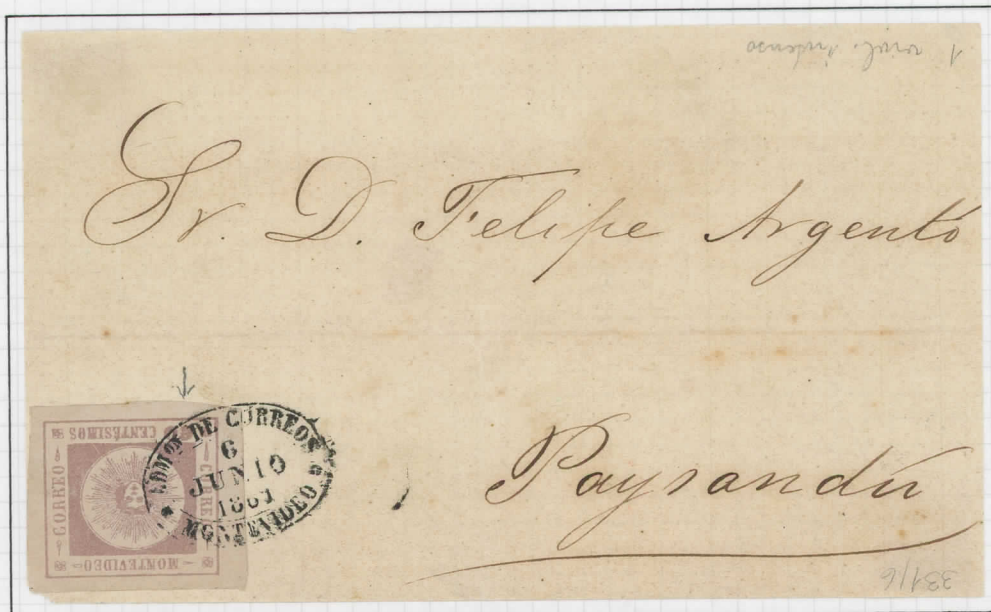 Sr. D. Felipe Argentó
Paysandú
ADMON DE CORREOS
6
JUNIO
MONTEVIDEO
CENTÉSIMOS
CORREO
CORRE
MONTEVIDEO
331/6